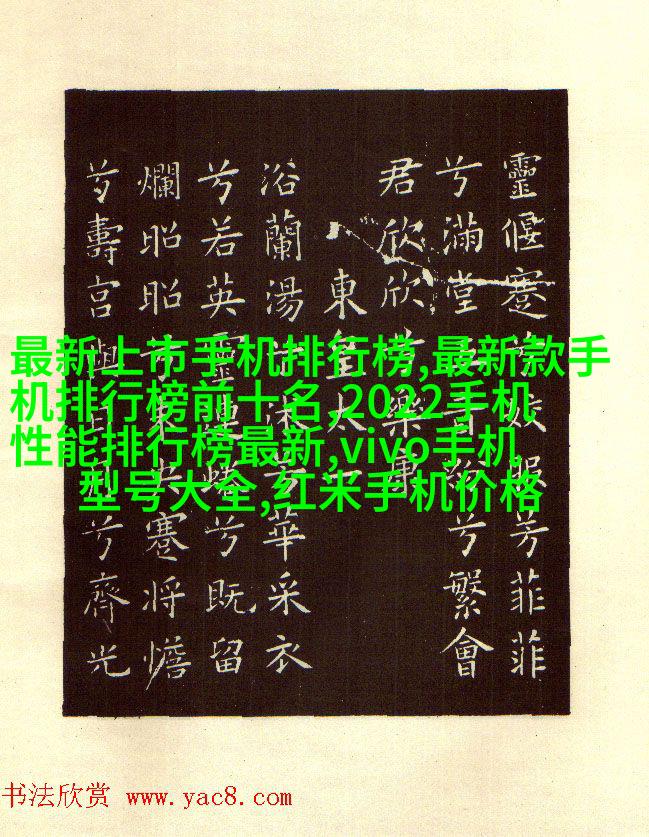 靈偃蹇兮姣服芳菲菲
兮滿堂五音紛兮繁會
君欣欣兮樂康
東皇太一
浴蘭湯兮沐芳華采衣
兮若英靈連蜷兮既留
爛昭昭兮未央蹇將憺
兮壽宮與日月兮齊光
最新上市手机排行榜,最新款手
机排行榜前十名,2022手机
性能排行榜最新,vivo手机
型号大全,红米手机价格
书法欣赏 www.yac8.com